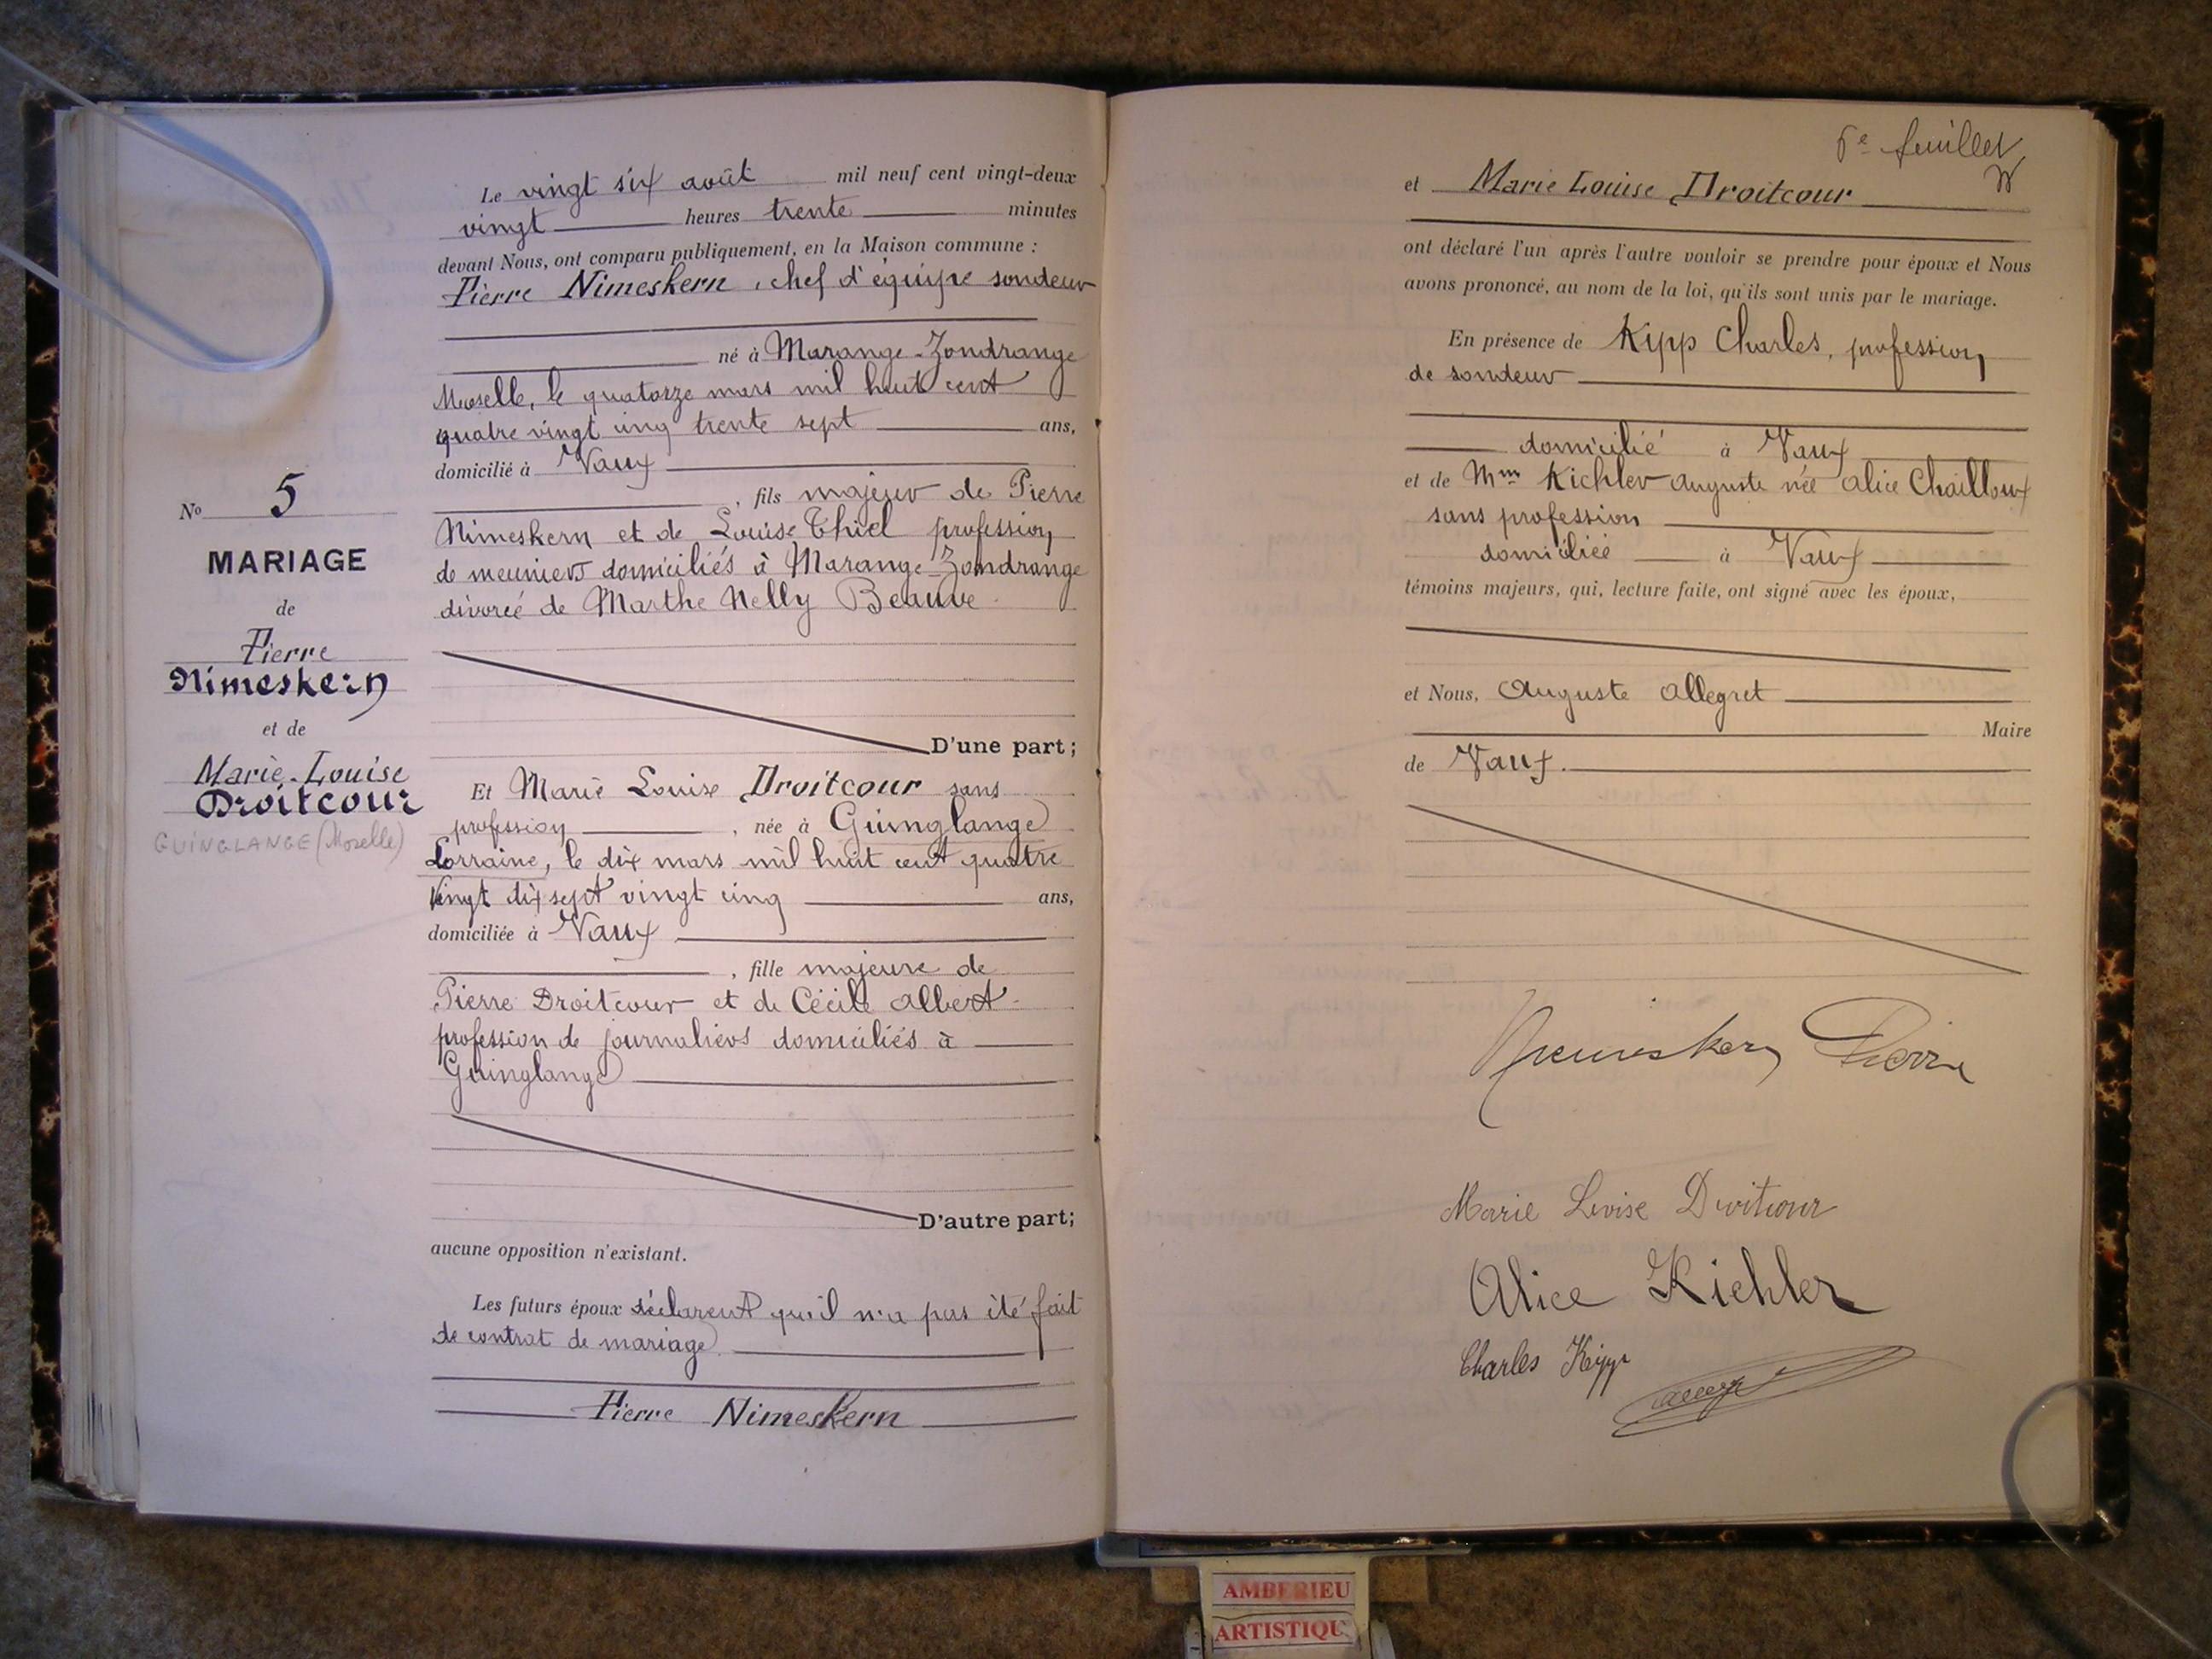 Le vingt six août mil neuf cent vingt-deux
vingt heures trente minutes
devant Nous, ont comparu publiquement, en la Maison commune :
Pierre Nimeskern, chef d'équipe sondeur
né à Marange-Zondrange
Moselle, le quatorze mars mil huit cent
quatre vingt cinq trente sept ans,
domicilié à Vaux
, fils majeur de Pierre
Nimeskern et de Louise Thiel profession
de meuniers domiciliés à Marange-Zondrange
divorcé de Marthe Nelly Beauve
D'une part ;
No 5
MARIAGE
de
Pierre
Nimeskern
et de
Marie-Louise
Droitcour
GUINGLANGE (Moselle)
Et Marie Louise Droitcour sans
profession, née à Guinglange
Lorraine, le dix mars mil huit cent quatre
vingt dix sept vingt cinq ans,
domiciliée à Vaux
, fille majeure de
Pierre Droitcour et de Cécile Albert
profession de journaliers domiciliés à
Guinglange
D'autre part ;
aucune opposition n'existant.
Les futurs époux déclarent qu'il n'a pas été fait
de contrat de mariage
Pierre Nimeskern
feuillet
et Marie Louise Droitcour
ont déclaré l'un après l'autre vouloir se prendre pour époux et Nous
avons prononcé, au nom de la loi, qu'ils sont unis par le mariage.
En présence de Kipp Charles, profession
de sondeur
domicilié à Vaux
et de Mme Kichler Auguste née Alice Chailloux
sans profession
domiciliée à Vaux
témoins majeurs, qui, lecture faite, ont signé avec les époux,
et Nous, Auguste Allegret
Maire
de Vaux.
Pierre
Marie Louise Droitcour
Alice Kichler
Charles Kipp
AMBERIEU
ARTISTIQU